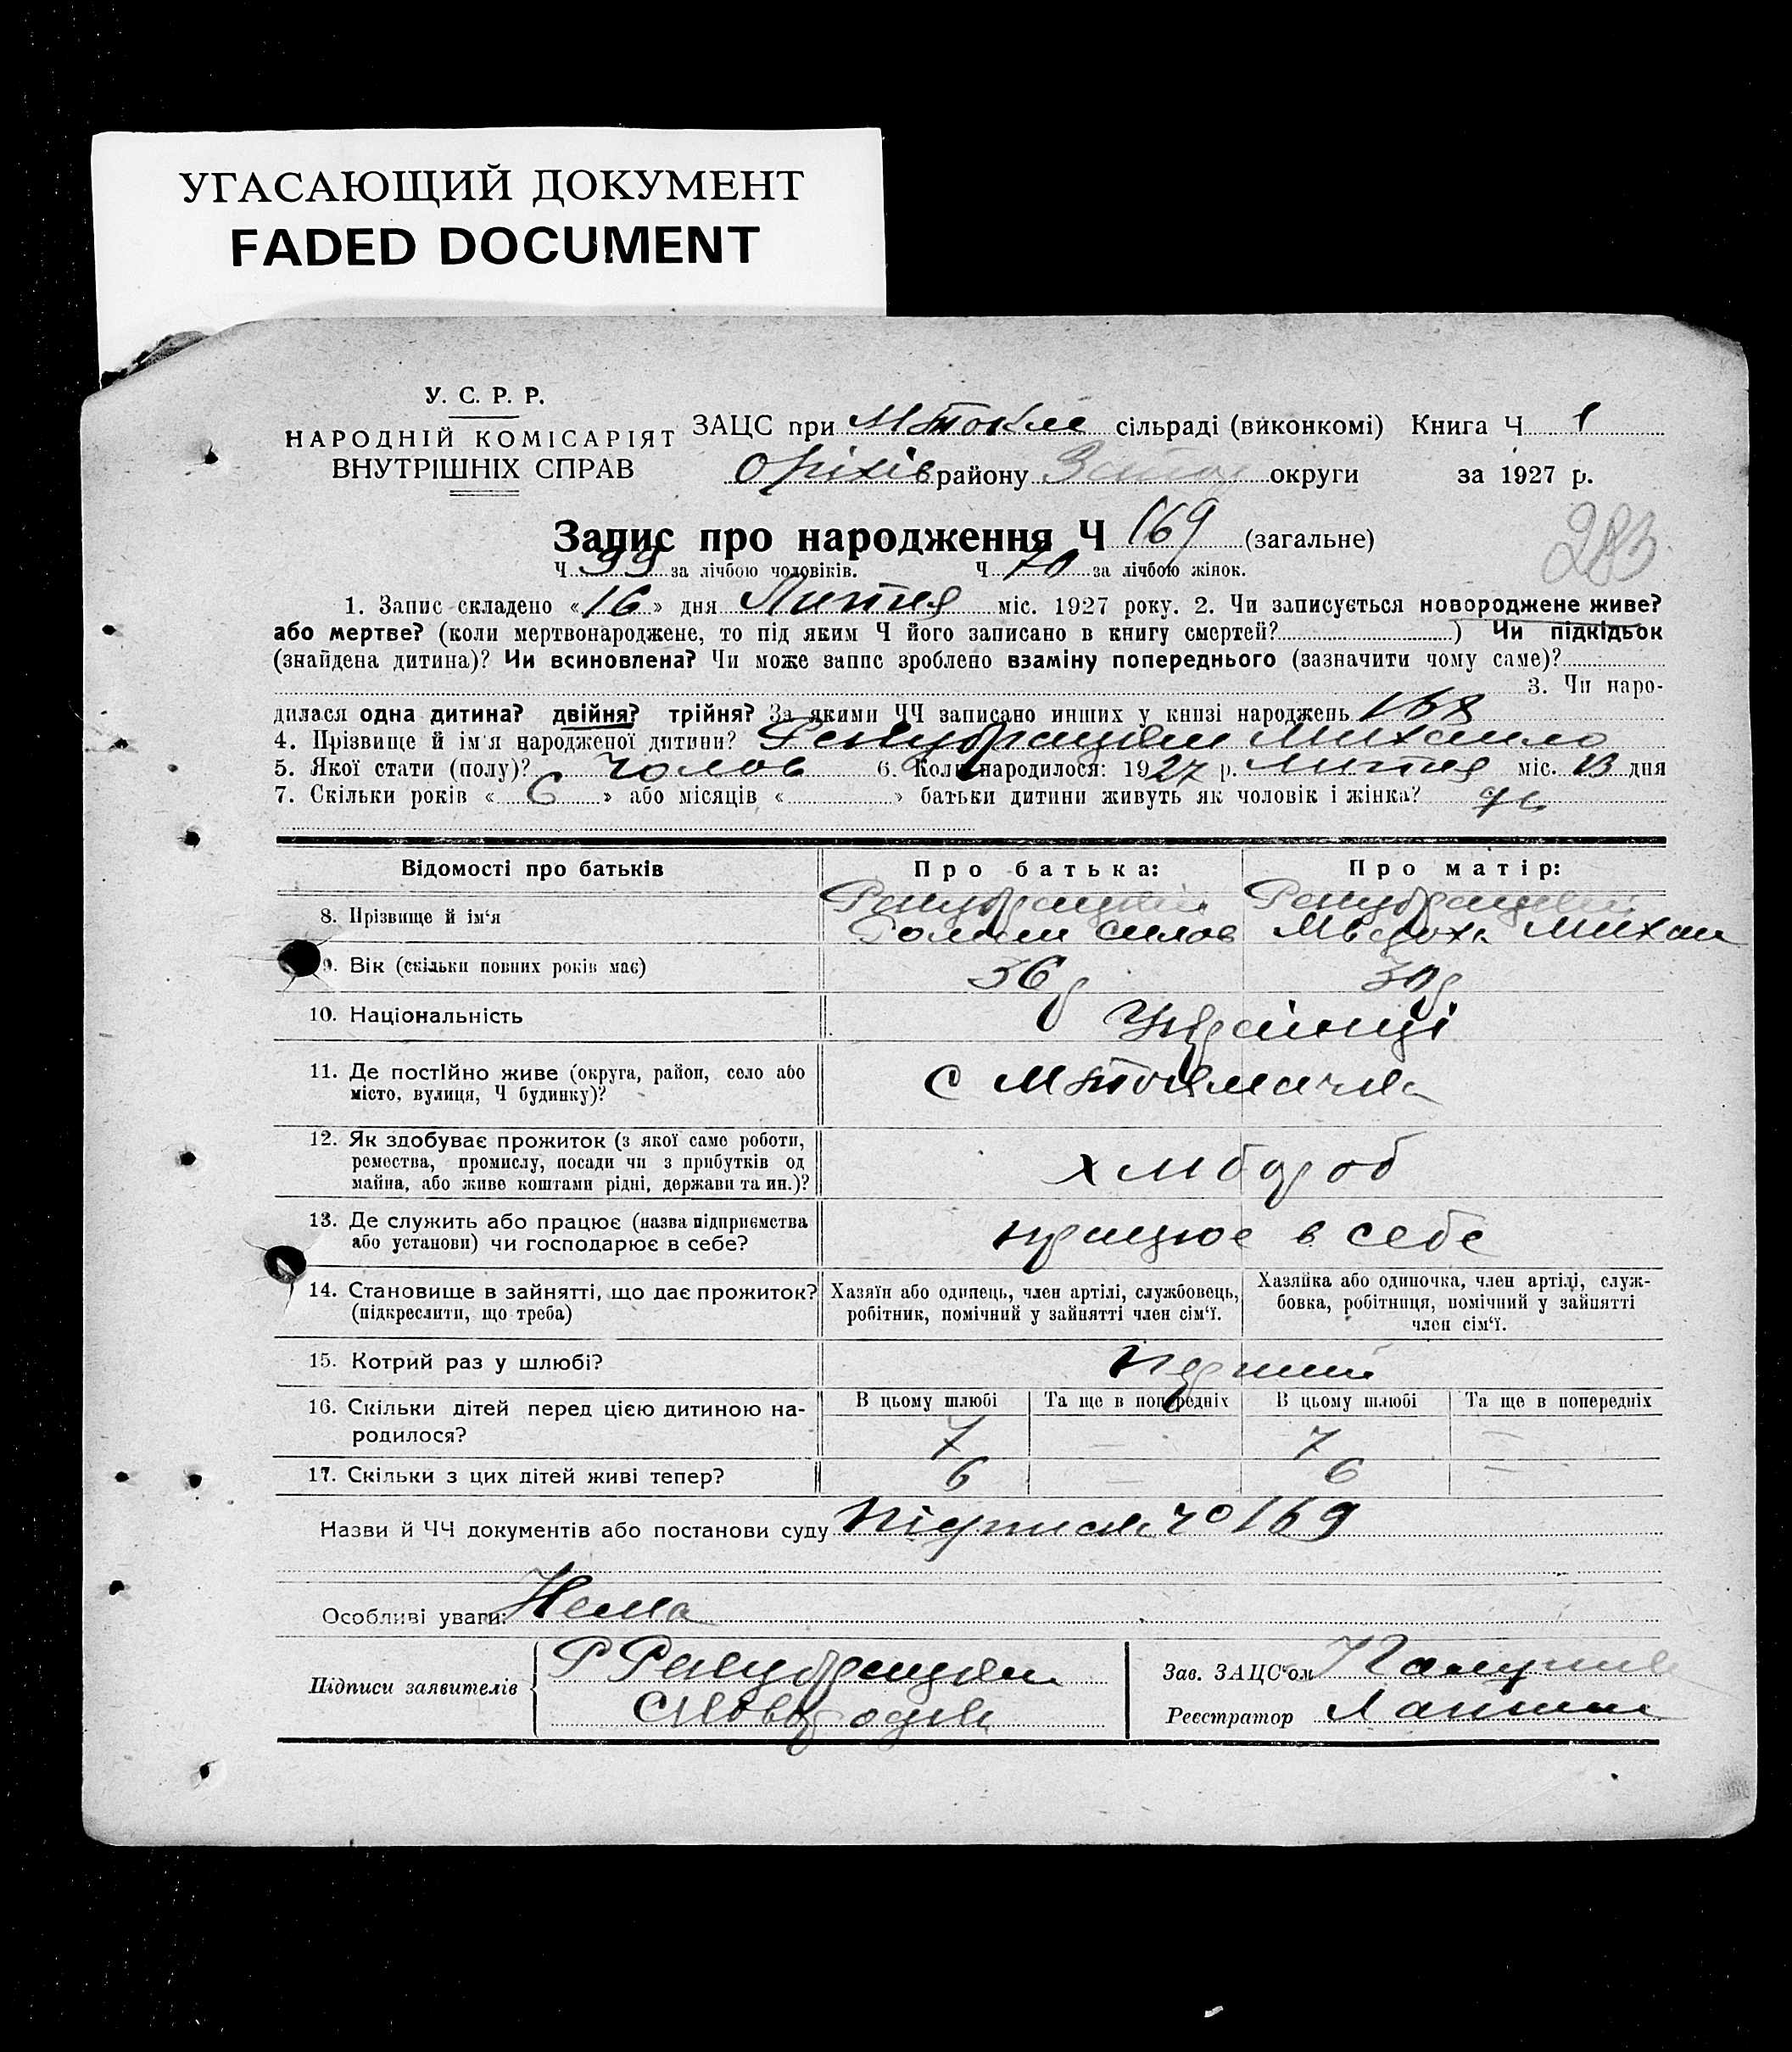 УГАСАЮЩИЙ ДОКУМЕНТ
FADED DOCUMENT
У. С. Р. Р.
НАРОДНІЙ КОМІСАРІЯТ
ВНУТРІШНІХ СПРАВ
ЗАЦС при М Токм сільраді (виконкомі) Книга Ч 1
Оріхів району Запор округи за 1927 р.
Запис про народження Ч 169 (загальне)
283
Ч 99 за лічбою чоловіків. Ч 70 за лічбою жінок.
1. Запис складено «16» дня Липня міс. 1927 року. 2. Чи записується новороджене живе?
або мертве? (коли мертвонароджене, то під яким Ч його записано в книгу смертей? ) Чи підкідьок
(знайдена дитина)? Чи всиновлена? Чи може запис зроблено взаміну попереднього (зазначити чому саме)?
3. Чи наро-
дилася одна дитина? двійня? трійня? За якими ЧЧ записано инших у книзі народжень 168
4. Прізвище й ім'я народженої дитини? Михаило
5. Якої стати (полу)? чолов 6. Коли народилося: 1927 р. липня міс. 13 дня
7. Скільки років «6» або місяців « » батьки дитини живуть як чоловік і жінка?
Відомості про батьків Про батька: Про матір:
8. Прізвище й ім'я
Силов Михаи
9. Вік (скільки повних років має) 36 р 30 р
10. Національність Українці
11. Де постійно живе (округа, район, село або
місто, вулиця, Ч будинку)? С М Токмачка
12. Як здобуває прожиток (з якої саме роботи,
ремества, промислу, посади чи з прибутків од
майна, або живе коштами рідні, держави та ин.)? хлібороб
13. Де служить або працює (назва підприємства
або установи) чи господарює в себе? працює в себе
14. Становище в зайнятті, що дає прожиток?
(підкреслити, що треба)
Хазяїн або одинець, член артілі, службовець,
робітник, помічний у зайнятті член сім'ї.
Хазяйка або одиночка, член артілі, служ-
бовка, робітниця, помічний у зайнятті
член сім'ї.
15. Котрий раз у шлюбі? Перший
16. Скільки дітей перед цією дитиною на-
родилося?
В цьому шлюбі Та ще в попередніх В цьому шлюбі Та ще в попередніх
7 — 7 —
17. Скільки з цих дітей живі тепер? 6 — 6 —
Назви й ЧЧ документів або постанови суду Підписка Чо 169
Особливі уваги: Нема
Підписи заявителів
Сковородін
Зав. ЗАЦС'ом
Реєстратор